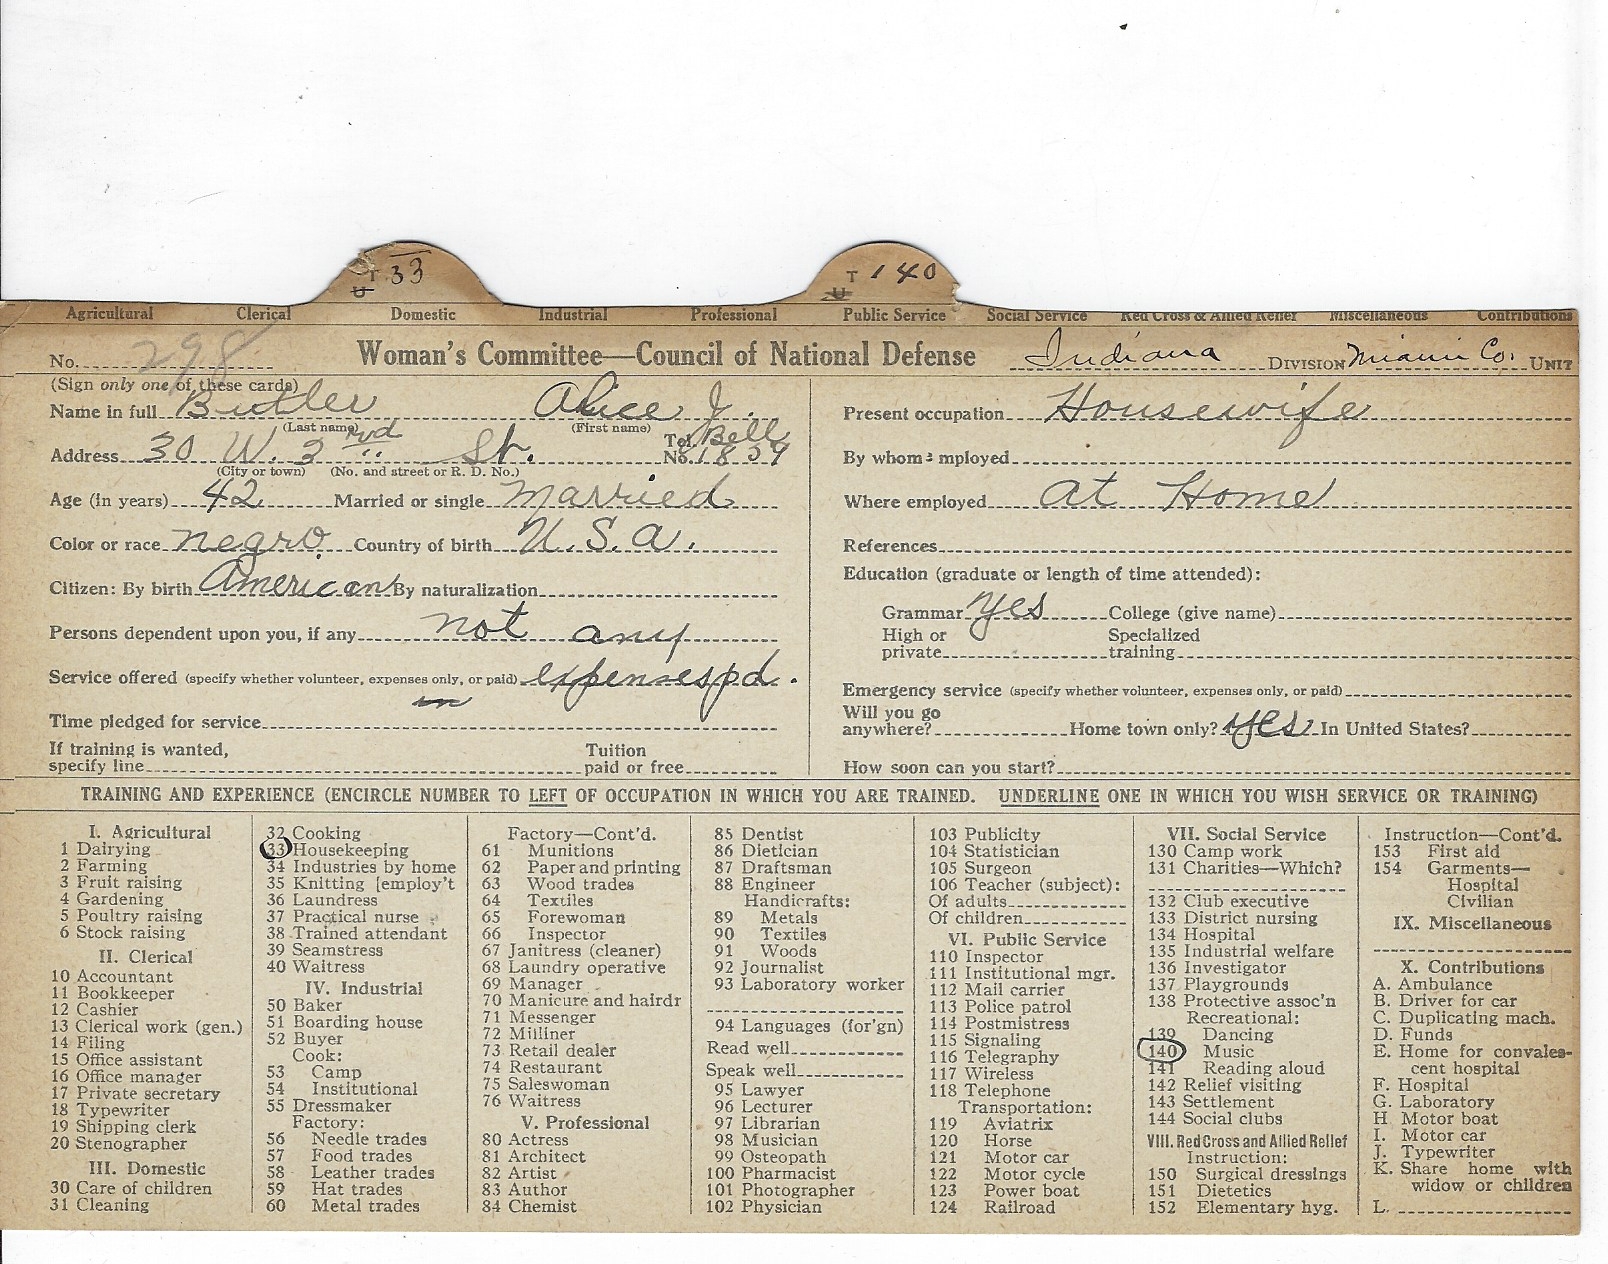 T 33 T 140
U U
Agricultural Clerical Domestic Industrial Professional Public Service Social Service Red Cross & Allied Relief Miscellaneous Contributions
No. 298 Woman's Committee—Council of National Defense Indiana DIVISION Miami Co. UNIT
(Sign only one of these cards)
Name in full Butler Alice J.
(Last name) (First name)
Address 30 W. 3rd St. Tel. No. Bell 1859
(City or town) (No. and street or R. D. No.)
Age (in years) 42 Married or single Married
Color or race negro Country of birth U.S.A.
Citizen: By birth American By naturalization
Persons dependent upon you, if any not any
Service offered (specify whether volunteer, expenses only, or paid) expenses pd.
Time pledged for service
If training is wanted, Tuition
specify line paid or free
Present occupation Housewife
By whom employed
Where employed at Home
References
Education (graduate or length of time attended):
Grammar yes College (give name)
High or Specialized
private training
Emergency service (specify whether volunteer, expenses only, or paid)
Will you go
anywhere? Home town only? yes In United States?
How soon can you start?
TRAINING AND EXPERIENCE (ENCIRCLE NUMBER TO LEFT OF OCCUPATION IN WHICH YOU ARE TRAINED. UNDERLINE ONE IN WHICH YOU WISH SERVICE OR TRAINING)
I. Agricultural
1 Dairying
2 Farming
3 Fruit raising
4 Gardening
5 Poultry raising
6 Stock raising
II. Clerical
10 Accountant
11 Bookkeeper
12 Cashier
13 Clerical work (gen.)
14 Filing
15 Office assistant
16 Office manager
17 Private secretary
18 Typewriter
19 Shipping clerk
20 Stenographer
III. Domestic
30 Care of children
31 Cleaning
32 Cooking
33 Housekeeping
34 Industries by home
35 Knitting [employ't
36 Laundress
37 Practical nurse
38 Trained attendant
39 Seamstress
40 Waitress
IV. Industrial
50 Baker
51 Boarding house
52 Buyer
Cook:
53 Camp
54 Institutional
55 Dressmaker
Factory:
56 Needle trades
57 Food trades
58 Leather trades
59 Hat trades
60 Metal trades
Factory—Cont'd.
61 Munitions
62 Paper and printing
63 Wood trades
64 Textiles
65 Forewoman
66 Inspector
67 Janitress (cleaner)
68 Laundry operative
69 Manager
70 Manicure and hairdr
71 Messenger
72 Milliner
73 Retail dealer
74 Restaurant
75 Saleswoman
76 Waitress
V. Professional
80 Actress
81 Architect
82 Artist
83 Author
84 Chemist
85 Dentist
86 Dietician
87 Draftsman
88 Engineer
Handicrafts:
89 Metals
90 Textiles
91 Woods
92 Journalist
93 Laboratory worker
94 Languages (for'gn)
Read well
Speak well
95 Lawyer
96 Lecturer
97 Librarian
98 Musician
99 Osteopath
100 Pharmacist
101 Photographer
102 Physician
103 Publicity
104 Statistician
105 Surgeon
106 Teacher (subject):
Of adults
Of children
VI. Public Service
110 Inspector
111 Institutional mgr.
112 Mail carrier
113 Police patrol
114 Postmistress
115 Signaling
116 Telegraphy
117 Wireless
118 Telephone
Transportation:
119 Aviatrix
120 Horse
121 Motor car
122 Motor cycle
123 Power boat
124 Railroad
VII. Social Service
130 Camp work
131 Charities—Which?
132 Club executive
133 District nursing
134 Hospital
135 Industrial welfare
136 Investigator
137 Playgrounds
138 Protective assoc'n
Recreational:
139 Dancing
140 Music
141 Reading aloud
142 Relief visiting
143 Settlement
144 Social clubs
VIII. Red Cross and Allied Relief
Instruction:
150 Surgical dressings
151 Dietetics
152 Elementary hyg.
Instruction—Cont'd.
153 First aid
154 Garments—
Hospital
Civilian
IX. Miscellaneous
X. Contributions
A. Ambulance
B. Driver for car
C. Duplicating mach.
D. Funds
E. Home for convales-
cent hospital
F. Hospital
G. Laboratory
H Motor boat
I. Motor car
J. Typewriter
K. Share home with
widow or children
L.